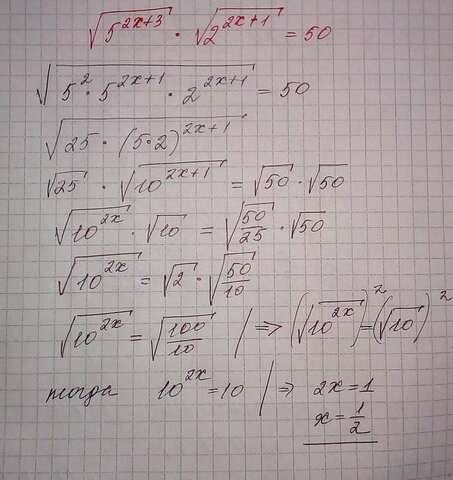 √(5^(2x+3)) · √(2^(2x+1)) = 50
√(5^2 · 5^(2x+1) · 2^(2x+1)) = 50
√(25 · (5·2)^(2x+1))
√25 · √(10^(2x+1)) = √50 · √50
√(10^(2x)) · √10 = √(50/25) · √50
√(10^(2x)) = √2 · √(50/10)
√(10^(2x)) = √(100/10) | ⇒ (√(10^(2x)))^2 = (√10)^2
тогда 10^(2x) = 10 | ⇒ 2x = 1
x = 1/2